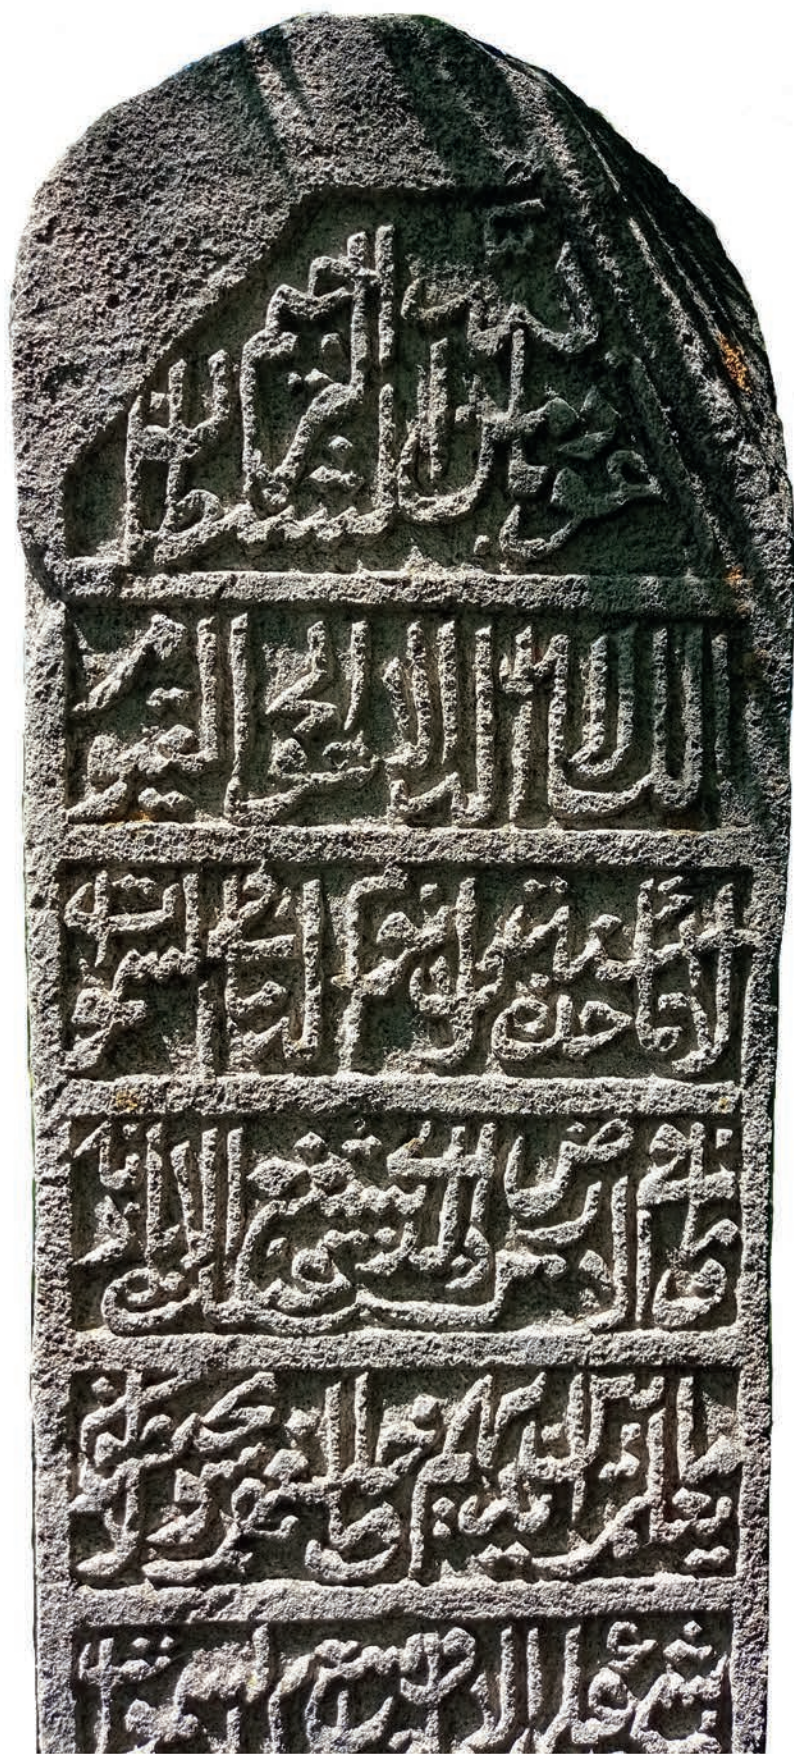 اعوذ بالله من الشيطان الرجيم
الله لا اله الا هو الحي القيوم
لا تاخذه سنة ولا نوم له ما في السموات
وما في الارض من ذا الذي يشفع عنده الا باذنه
يعلم ما بين ايديهم وما خلفهم ولا يحيطون
بشي من علمه الا